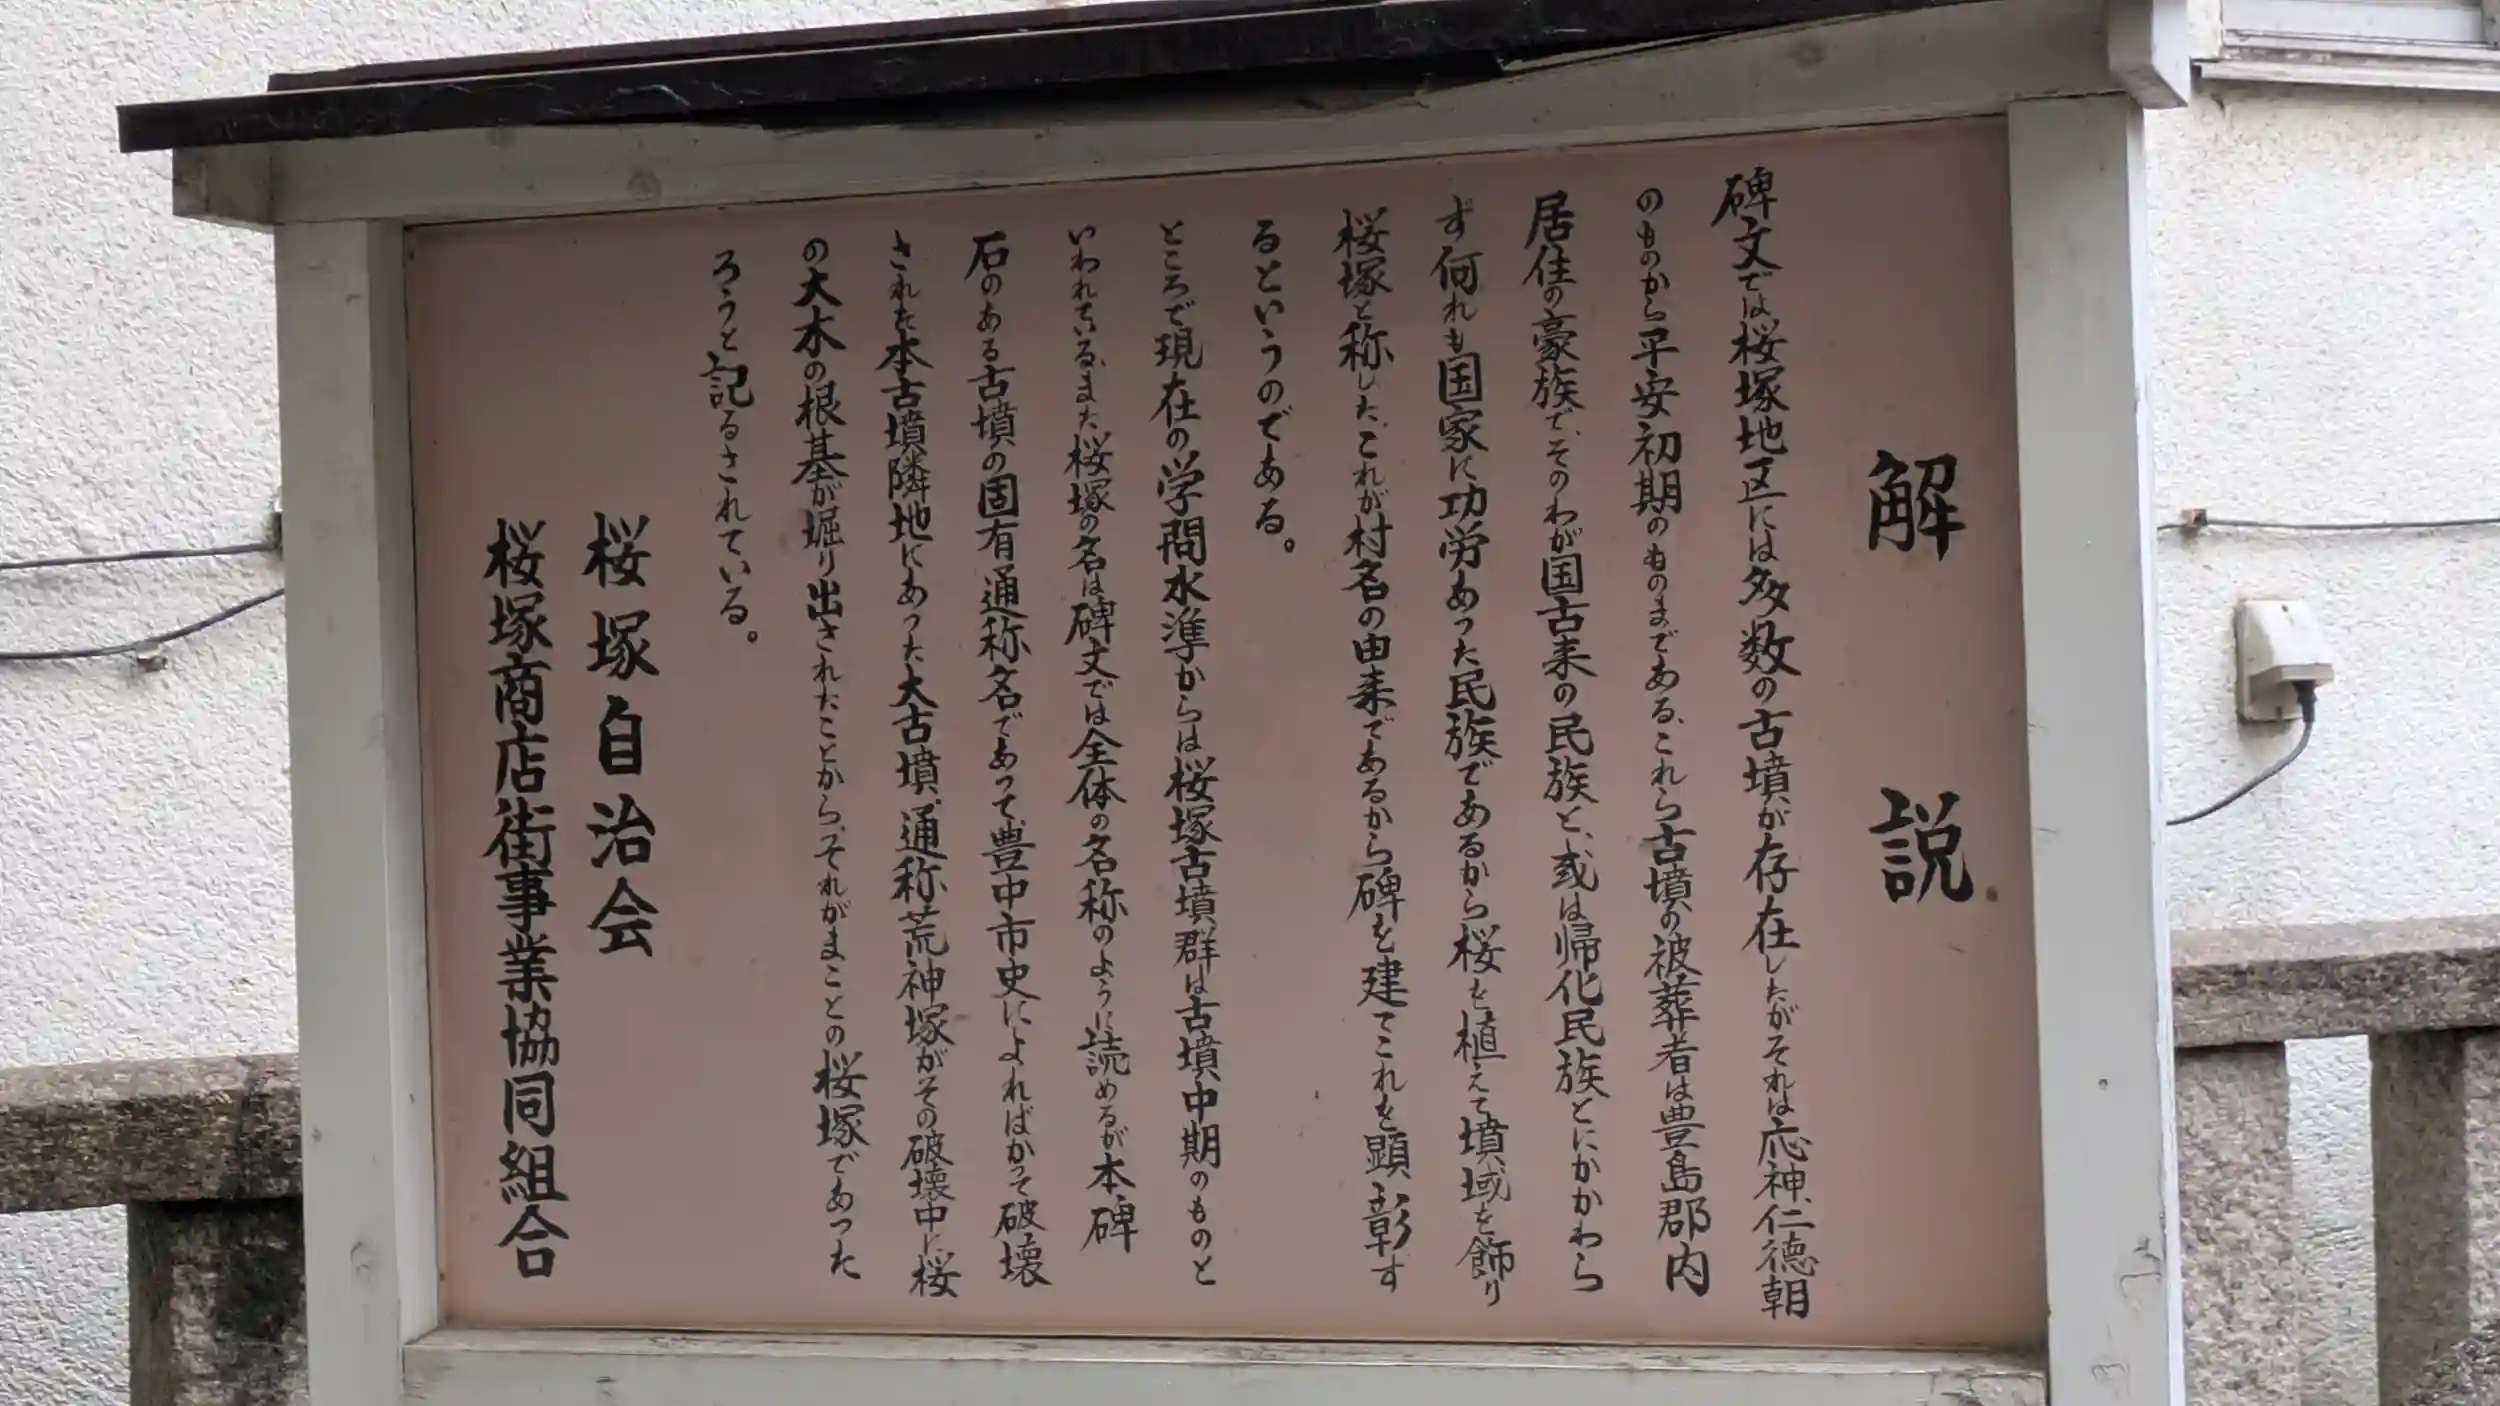 解説
碑文では桜塚地区には多数の古墳が存在したがそれは応神、仁徳朝
のものから平安初期のものまである、これら古墳の被葬者は豊島郡内
居住の豪族で、そのわが国古来の民族と、或は帰化民族とにかかわら
ず何れも国家に功労あった民族であるから桜を植えて墳域を飾り
桜塚と称した、これが村名の由来であるから碑を建てこれを顕彰す
るというのである。
ところで現在の学問水準からは桜塚古墳群は古墳中期のものと
いわれている、また桜塚の名は碑文では全体の名称のように読めるが本碑
石のある古墳の固有通称名であって、豊中市史によればかって破壊
された本古墳隣地にあった大古墳、通称荒神塚がその破壊中に桜
の大木の根基が堀り出されたことから、それがまことの桜塚であった
ろうと記るされている。
桜塚自治会
桜塚商店街事業協同組合